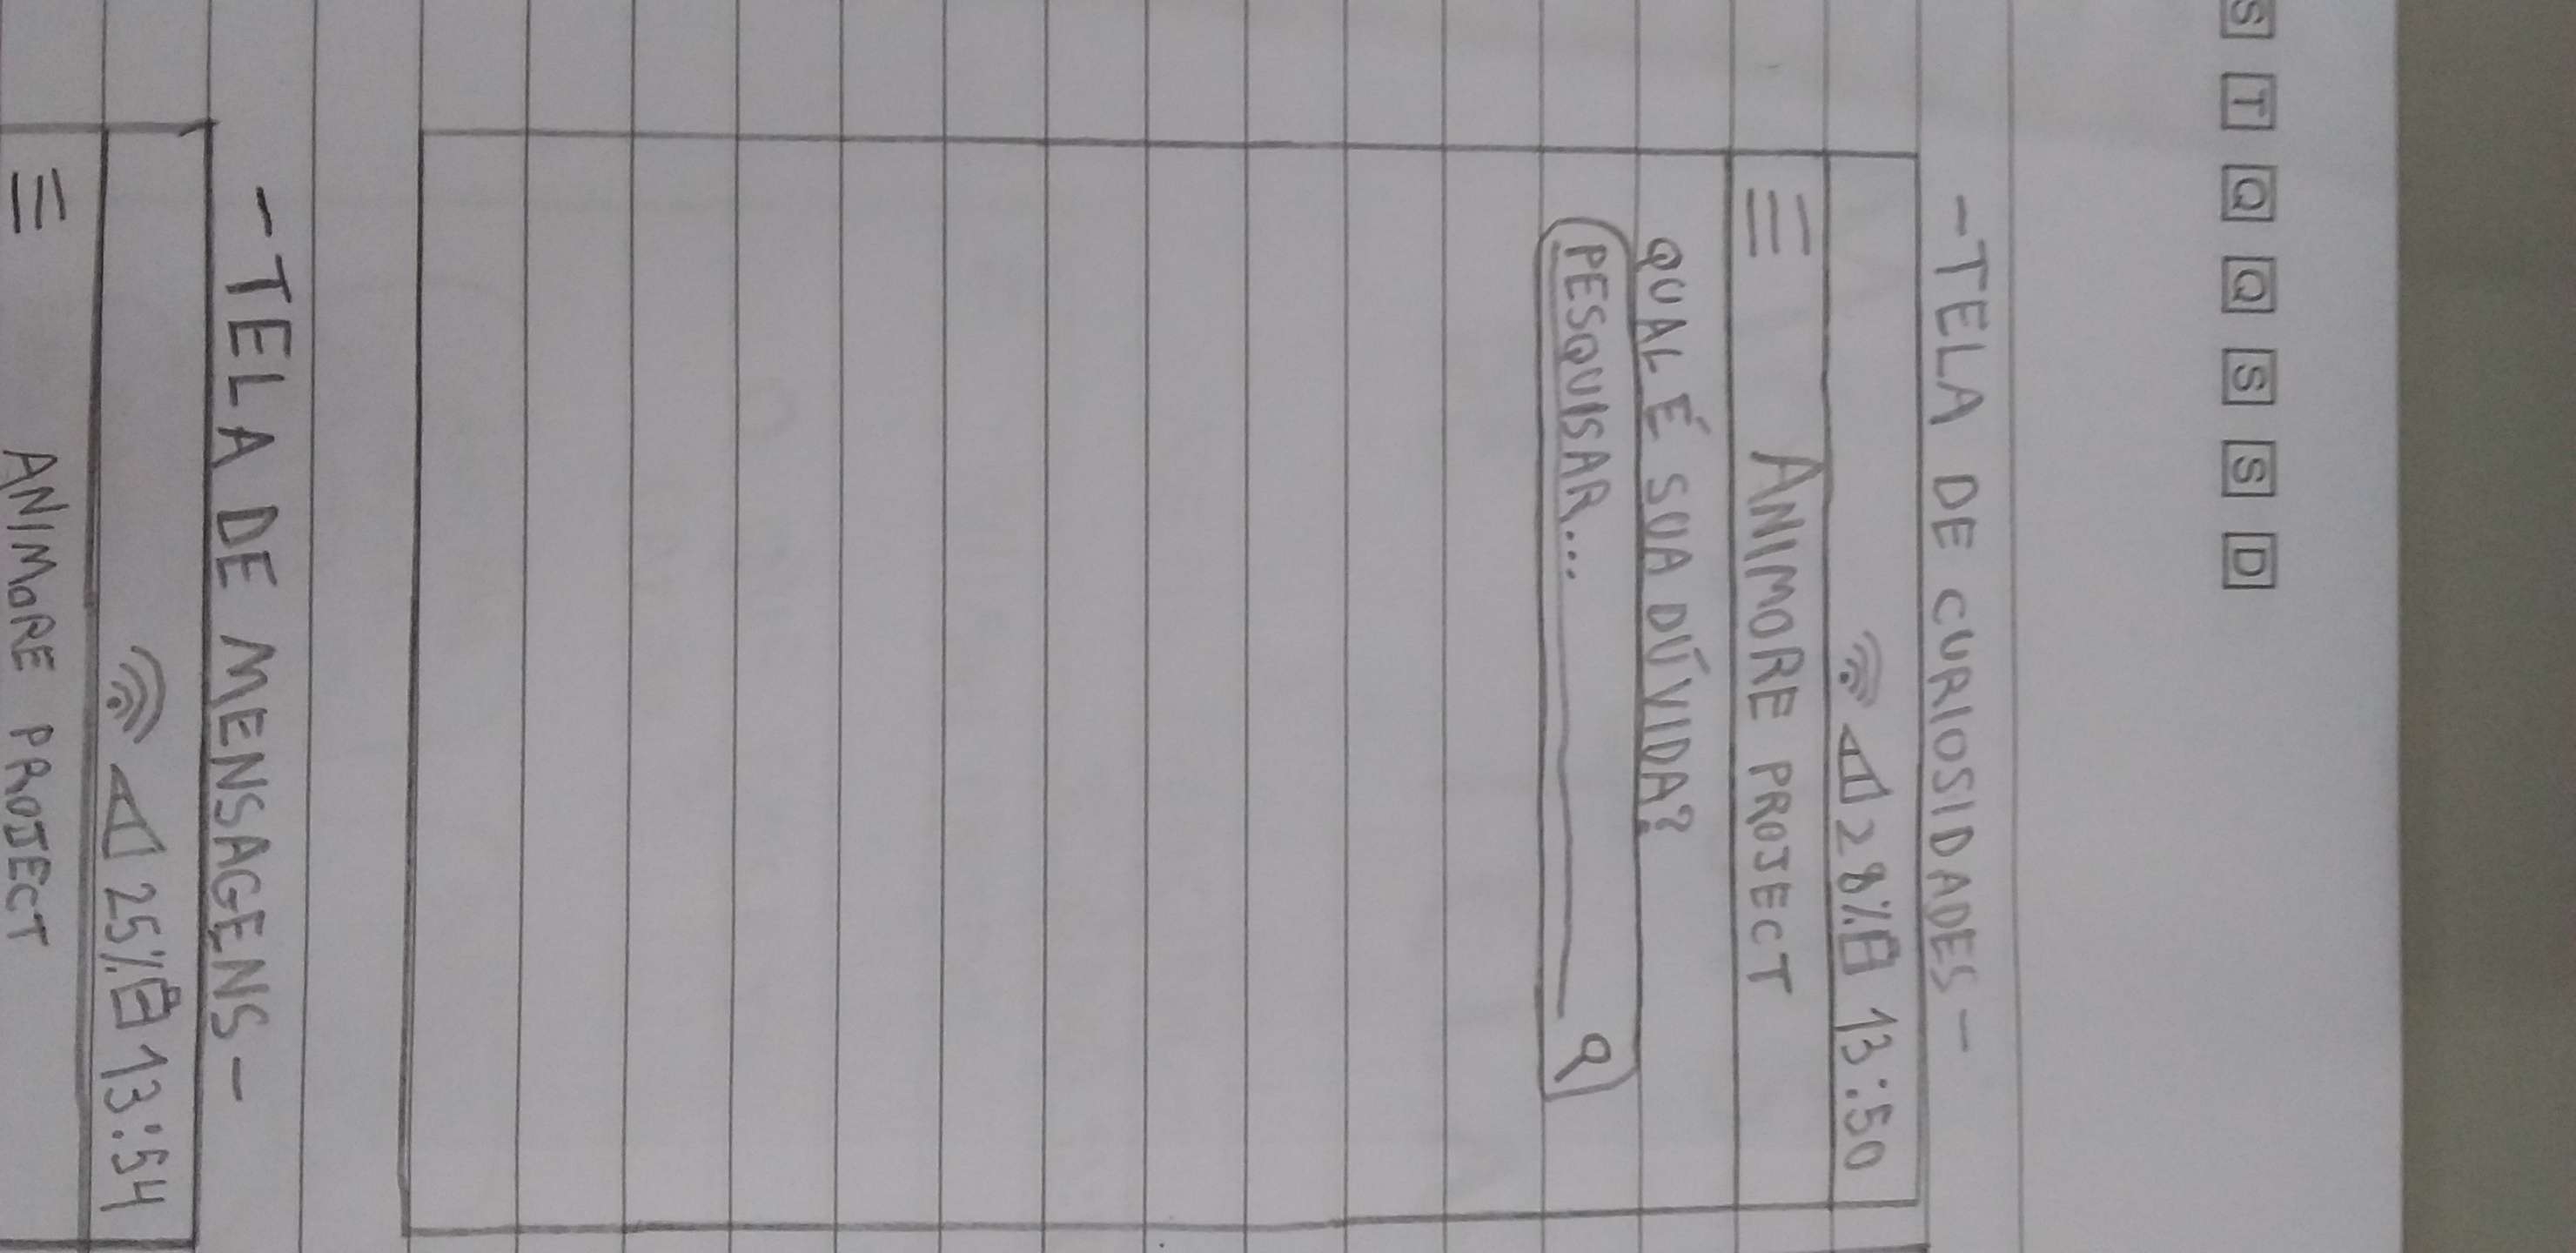 S T Q Q S S D
-TELA DE CURIOSIDADES-
28% 13:50
ANIMORE PROJECT
QUAL É SUA DÚVIDA?
PESQUISAR...
-TELA DE MENSAGENS-
25% 13:54
ANIMORE PROJECT